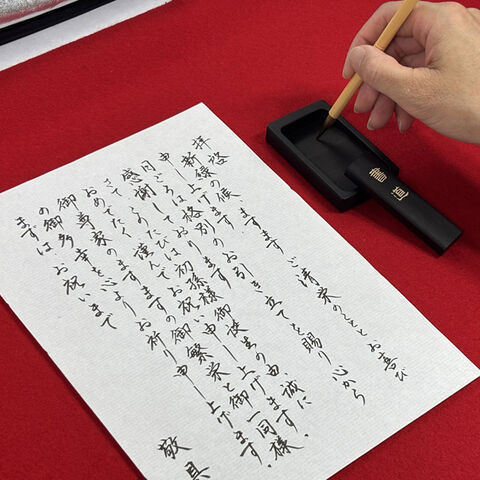 拝啓
新緑の候 ますますご清栄のこととお喜び
申し上げます
日ごろは格別のお引き立てを賜り 心から
感謝しております
さてこのたびは初孫様御誕生の由、誠に
おめでたく 謹んでお祝い申し上げます。
御尊家のますますの御繁栄と御一同様
の御多幸を心よりお祈り申し上げます。
まずは、お祝いまで
敬具
書道